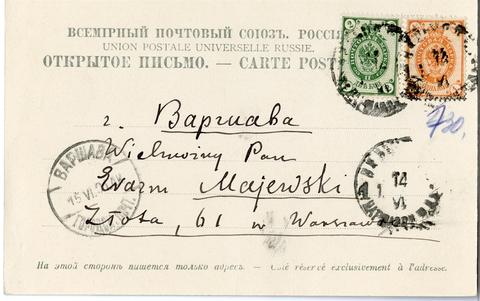 ВСЕМІРНЫЙ ПОЧТОВЫЙ СОЮЗЪ. РОССІЯ
UNION POSTALE UNIVERSELLE RUSSIE.
ОТКРЫТОЕ ПИСЬМО. — CARTE POST
г. Варшава
Wielmożny Pan
Erazm Majewski
Złota, 61 w Warszawie
ВАРШАВА
15 VI
14
VI
1
14
VI
730,
На этой сторонѣ пишется только адресъ. — Côté réservé exclusivement à l'adresse.